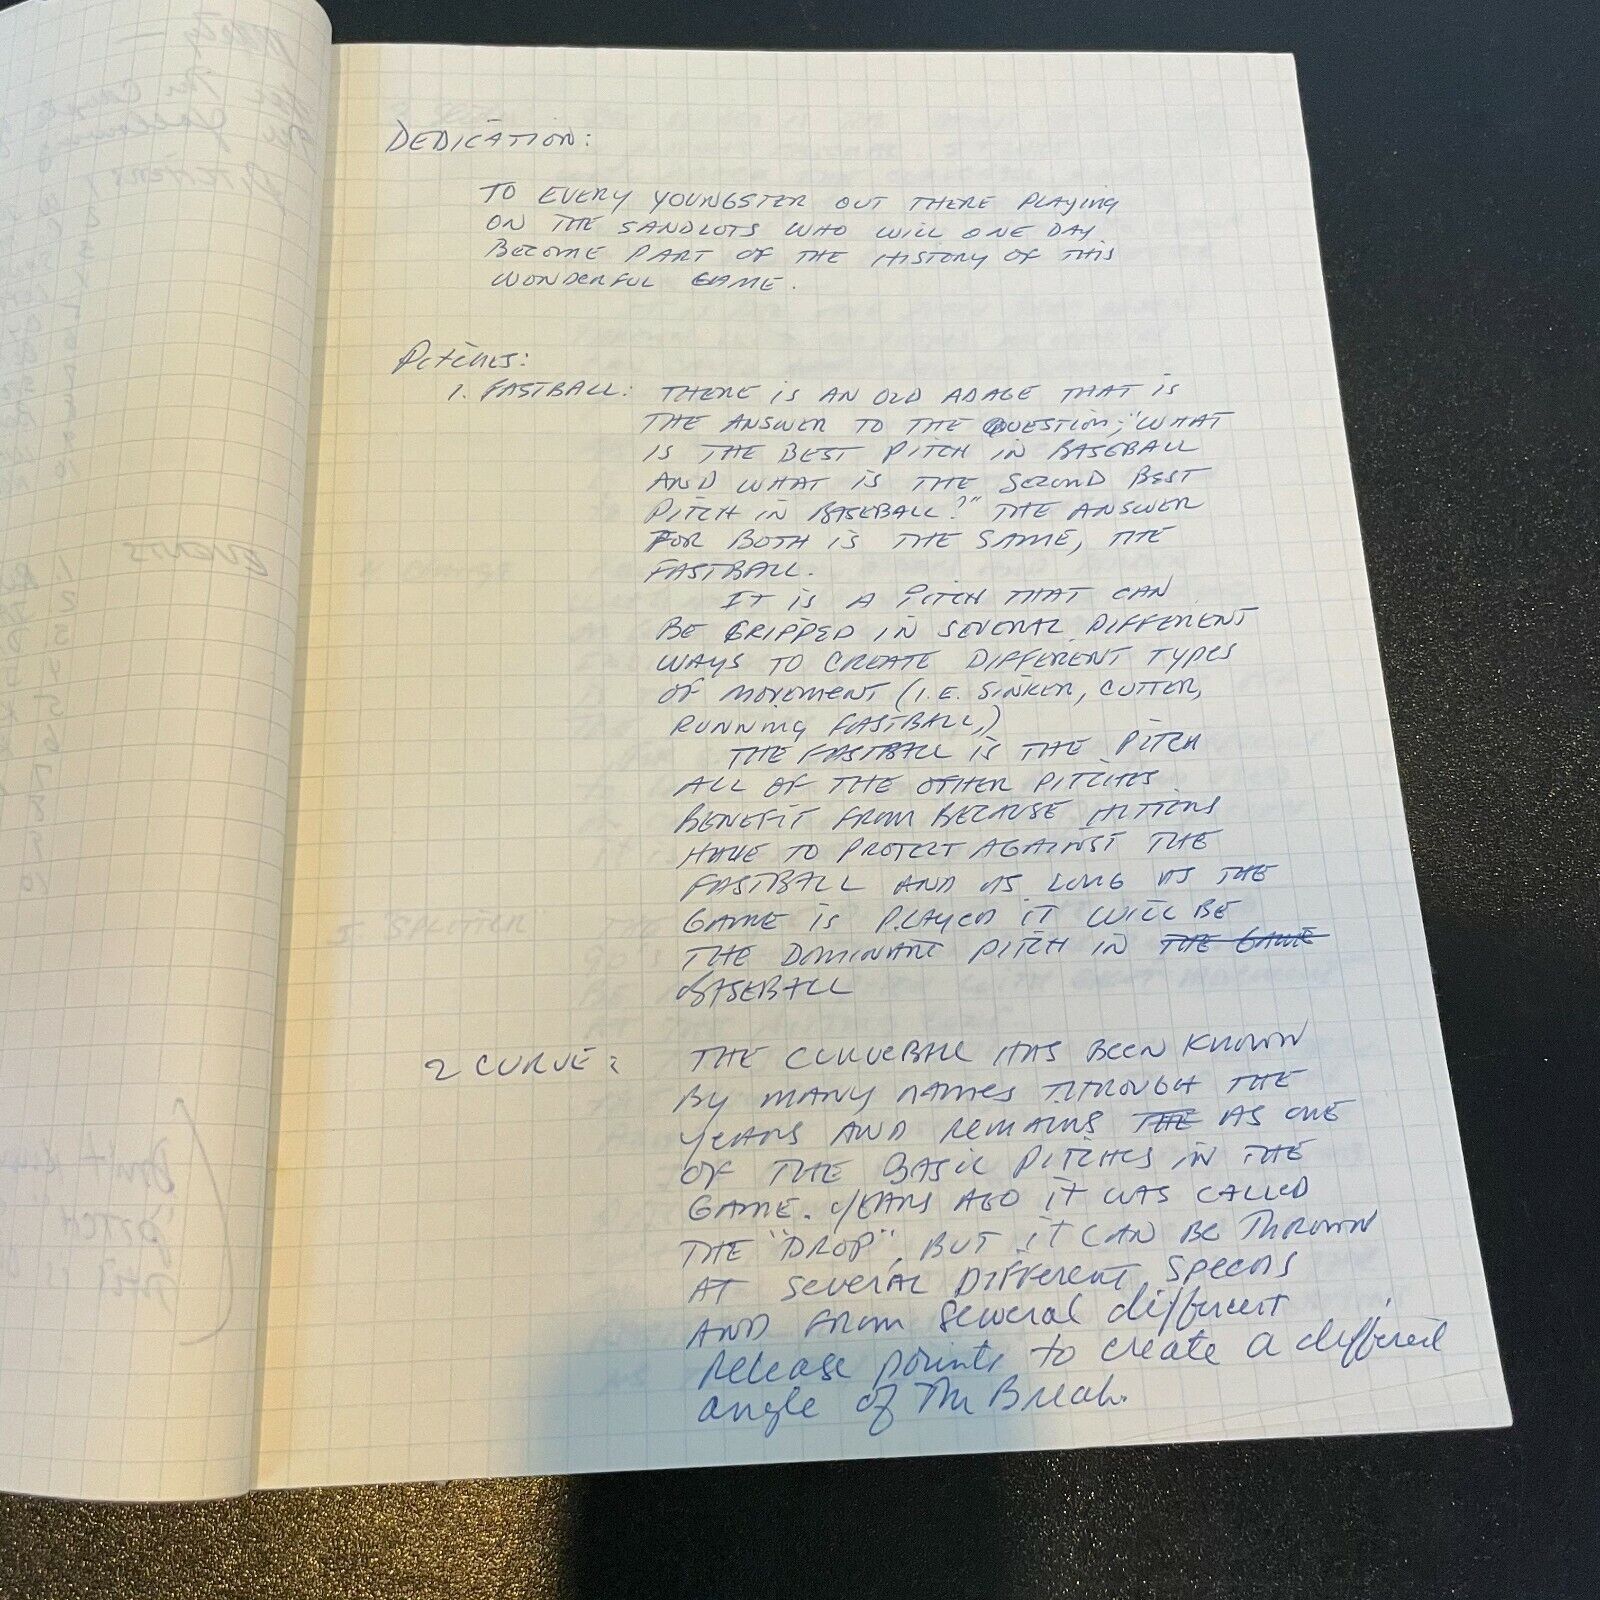 DEDICATION:
TO EVERY YOUNGSTER OUT THERE PLAYING
ON THE SANDLOTS WHO WILL ONE DAY
BECOME PART OF THE HISTORY OF THIS
WONDERFUL GAME.
PITCHES:
1. FASTBALL: THERE IS AN OLD ADAGE THAT IS
THE ANSWER TO THE QUESTION; "WHAT
IS THE BEST PITCH IN BASEBALL
AND WHAT IS THE SECOND BEST
PITCH IN BASEBALL?" THE ANSWER
FOR BOTH IS THE SAME, THE
FASTBALL.
IT IS A PITCH THAT CAN
BE GRIPPED IN SEVERAL DIFFERENT
WAYS TO CREATE DIFFERENT TYPES
OF MOVEMENT (I.E. SINKER, CUTTER,
RUNNING FASTBALL,)
THE FASTBALL IS THE PITCH
ALL OF THE OTHER PITCHES
BENEFIT FROM BECAUSE HITTERS
HAVE TO PROTECT AGAINST THE
FASTBALL AND AS LONG AS THE
GAME IS PLAYED IT WILL BE
THE DOMINANT PITCH IN THE GAME
BASEBALL
2 CURVE: THE CURVEBALL HAS BEEN KNOWN
BY MANY NAMES THROUGH THE
YEARS AND REMAINS THE AS ONE
OF THE BASIC PITCHES IN THE
GAME. YEARS AGO IT WAS CALLED
THE "DROP", BUT IT CAN BE THROWN
AT SEVERAL DIFFERENT SPEEDS
AND FROM Several different
Release points to create a different
angle of The Break.
EVENTS